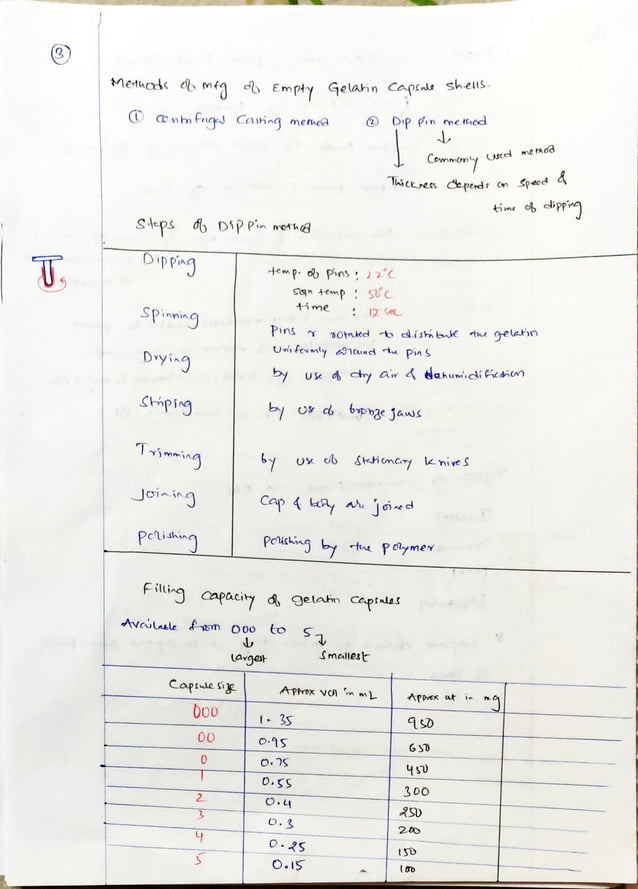 3
Methods of mfg of Empty Gelatin Capsule shells.
① Centrifugal Casting method ② Dip pin method
Commonly used method
Thickness depends on speed &
time of dipping
Steps of Dip pin method
Dipping temp. of pins : 22°C
soln temp : 50°C
time : 12 sec
Spinning Pins r rotated to distribute the gelatin
uniformly around the pins
Drying by use of dry air & dehumidifiction
Striping by use of bronze jaws
Trimming by use of stationary knives
Joining Cap & body are joined
Polishing Polishing by the polymer
Filling capacity of gelatin capsules
Available from 000 to 5
largest smallest
Capsule size Approx vol in mL Approx wt in mg
000 1.35 950
00 0.95 650
0 0.75 450
1 0.55 300
2 0.4 250
3 0.3 200
4 0.25 150
5 0.15 100